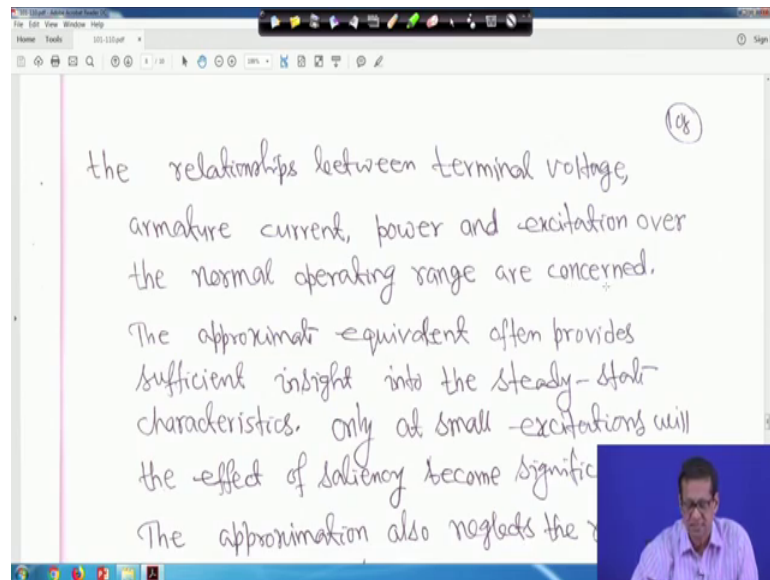 101-110.pdf - Adobe Acrobat Reader DC
File Edit View Window Help
Home Tools 101-110.pdf × Sign
8 / 10
108
the relationships between terminal voltage,
armature current, power and excitation over
the normal operating range are concerned.
The approximate equivalent often provides
sufficient insight into the steady-state
characteristics. only at small excitations will
the effect of saliency become signific
The approximation also neglects the r